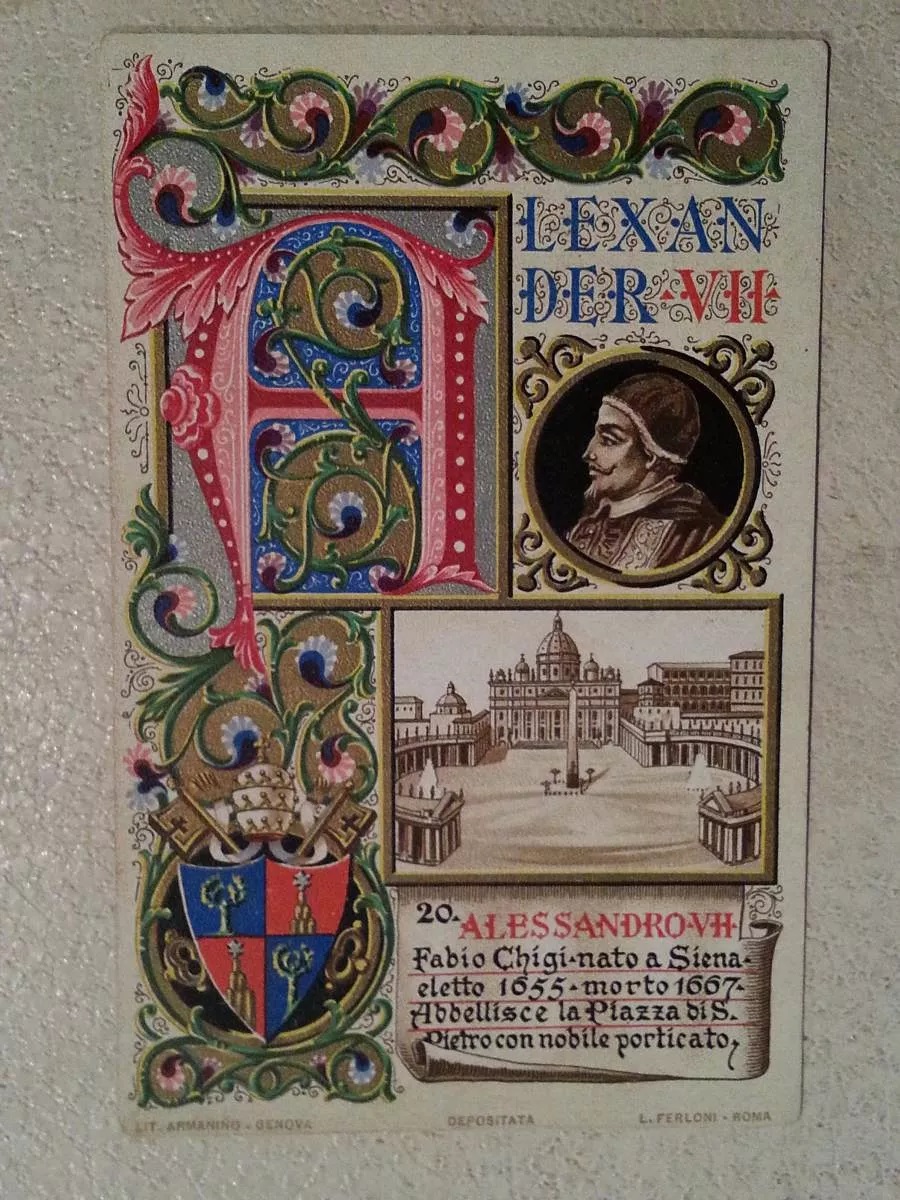 ALEXAN
DER·VII·
20. ALESSANDRO·VII·
Fabio Chigi·nato a Siena·
eletto 1655·morto 1667·
Abbellisce la Piazza di S.
Pietro con nobile porticato,
LIT. ARMANINO - GENOVA
DEPOSITATA
L. FERLONI - ROMA